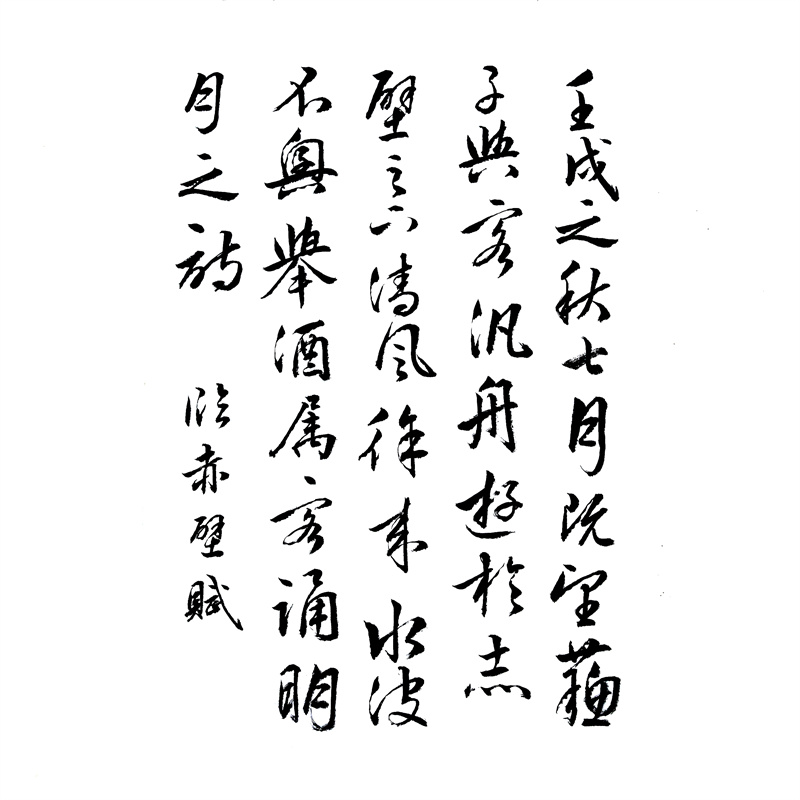 壬戌之秋七月既望蘇
子與客汎舟遊於赤
壁之下清風徐來水波
不興舉酒属客誦明
月之詩 臨赤壁賦